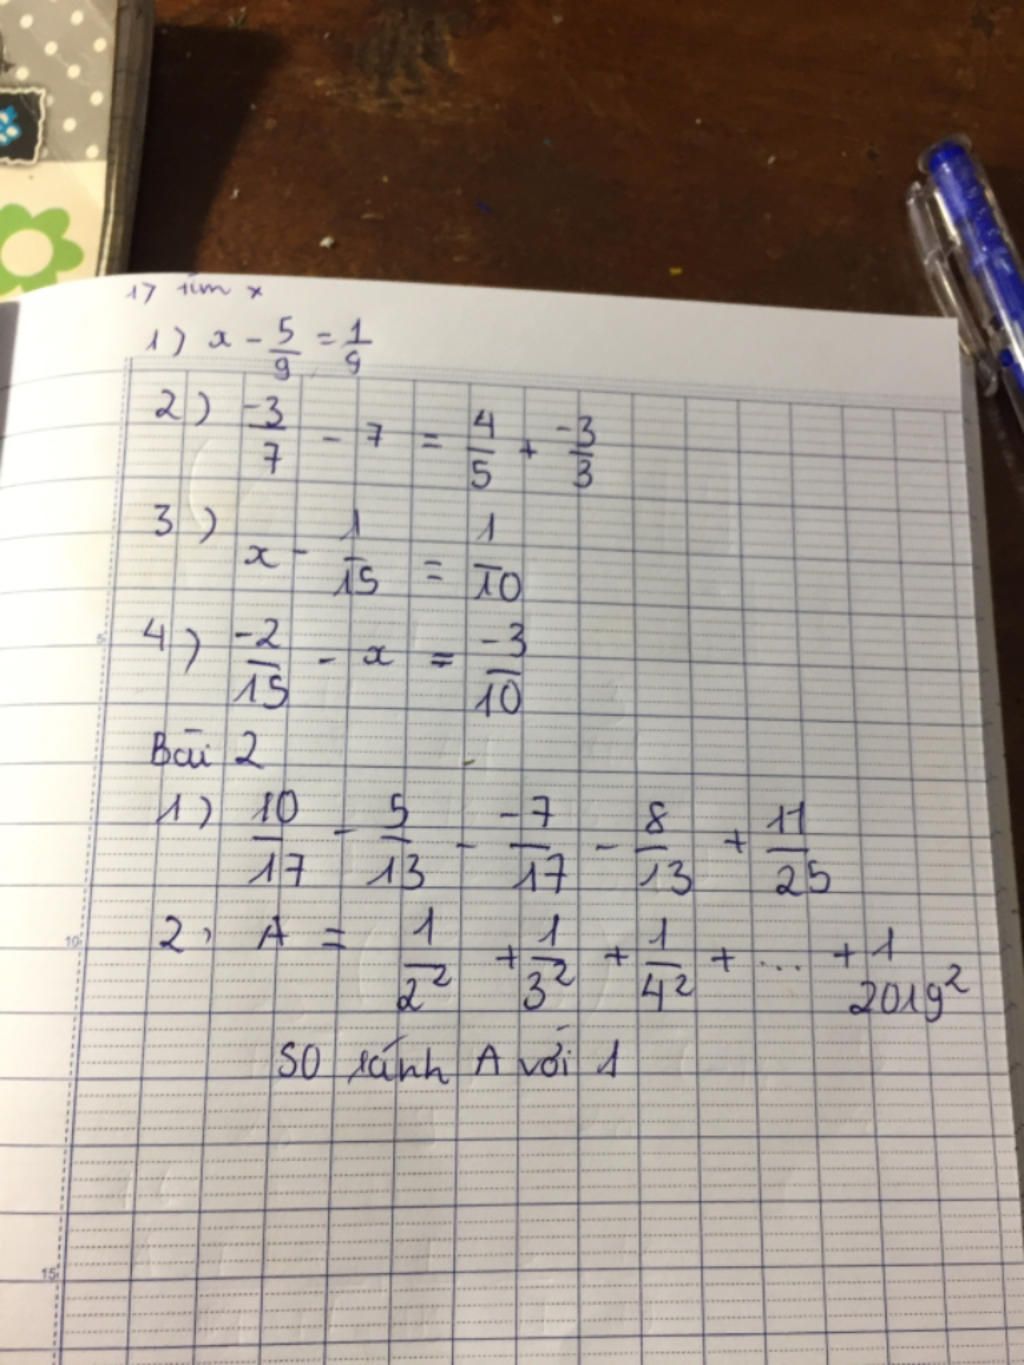 1) tìm x
1) x - 5/9 = 1/9
2) -3/7 - 7 = 4/5 + -3/3
3) x - 1/15 = 1/10
4) -2/15 - x = -3/10
Bài 2
1) 10/17 - 5/13 - -7/17 - 8/13 + 11/25
2, A = 1/2² + 1/3² + 1/4² + ... + 1/2019²
SO sánh A với 1
5
10
15